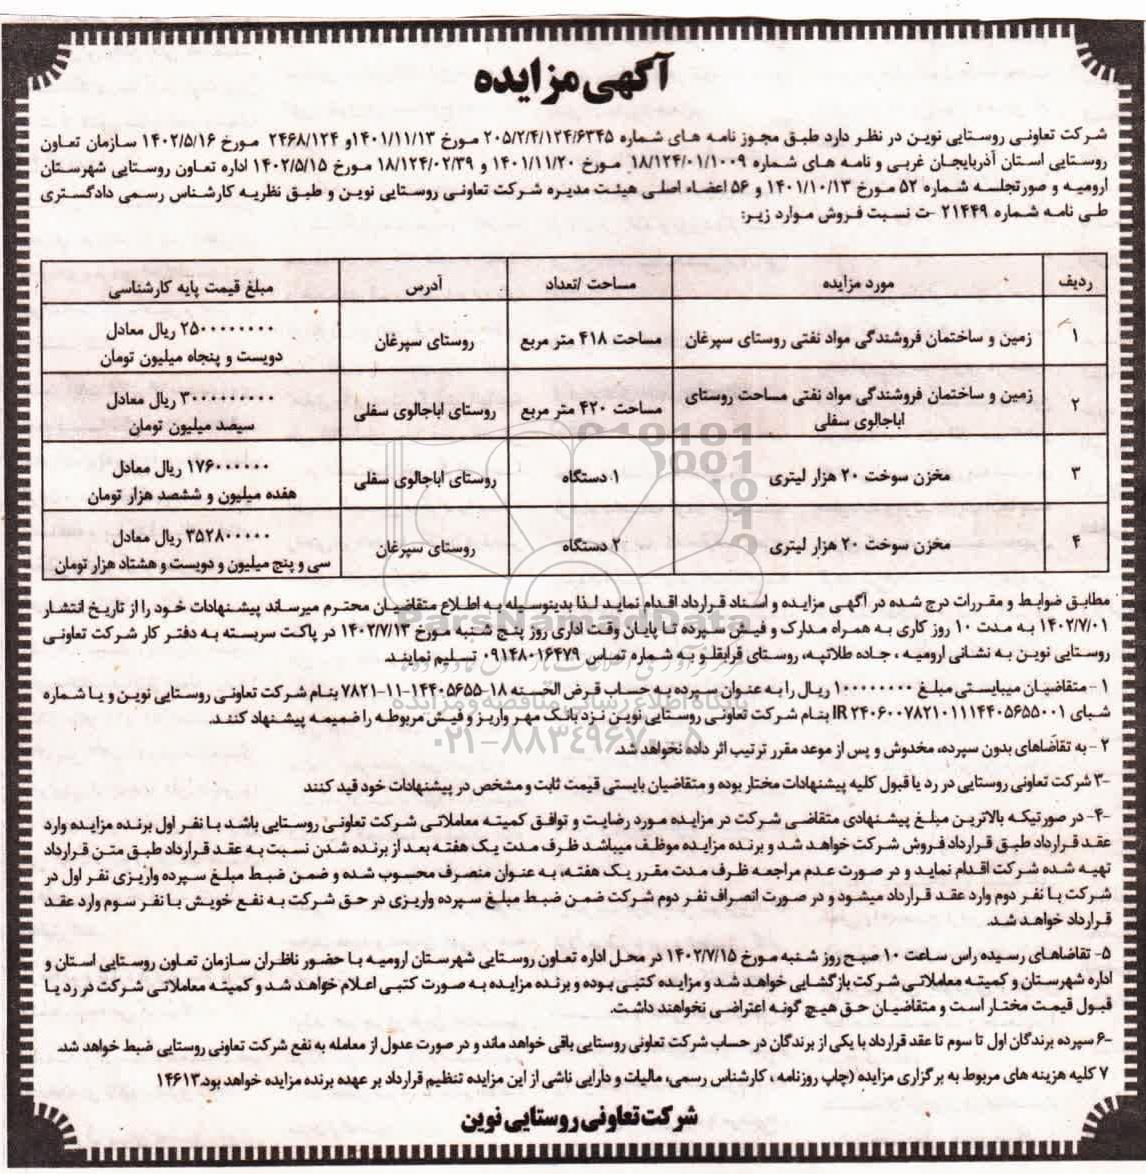 آگهی مزایده
شرکت تعاونی روستایی نوین در نظر دارد طبق مجوز نامه های شماره ۲۰۵/۲/۴/۱۲۴/۶۳۴۵ مورخ ۱۴۰۱/۱۱/۱۳و ۲۴۶۸/۱۲۴ مورخ ۱۴۰۲/۵/۱۶ سازمان تعاون
روستایی استان آذربایجان غربی و نامه های شماره ۱۸/۱۲۴/۰۱/۱۰۰۹ مورخ ۱۴۰۱/۱۱/۲۰ و ۱۸/۱۲۴/۰۲/۳۹ مورخ ۱۴۰۲/۵/۱۵ اداره تعاون روستایی شهرستان
ارومیه و صورتجلسه شماره ۵۲ مورخ ۱۴۰۱/۱۰/۱۳ و ۵۶ اعضاء اصلی هیئت مدیره شرکت تعاونی روستایی نوین و طبق نظریه کارشناس رسمی دادگستری
طی نامه شماره ۲۱۴۴۹ -ت نسبت فروش موارد زیر:
ردیف مورد مزایده مساحت /تعداد آدرس مبلغ قیمت پایه کارشناسی
۱ زمین و ساختمان فروشندگی مواد نفتی روستای سپرغان مساحت ۴۱۸ متر مربع روستای سپرغان ۲۵۰۰۰۰۰۰۰۰ ریال معادل
دویست و پنجاه میلیون تومان
۲ زمین و ساختمان فروشندگی مواد نفتی مساحت روستای
اباجالوی سفلی مساحت ۴۲۰ متر مربع روستای اباجالوی سفلی ۳۰۰۰۰۰۰۰۰۰ ریال معادل
سیصد میلیون تومان
۳ مخزن سوخت ۲۰ هزار لیتری ۱ دستگاه روستای اباجالوی سفلی ۱۷۶۰۰۰۰۰۰ ریال معادل
هفده میلیون و ششصد هزار تومان
۴ مخزن سوخت ۲۰ هزار لیتری ۲ دستگاه روستای سپرغان ۳۵۲۸۰۰۰۰۰ ریال معادل
سی و پنج میلیون و دویست و هشتاد هزار تومان
مطابق ضوابط و مقررات درج شده در آگهی مزایده و اسناد قرارداد اقدام نماید لذا بدینوسیله به اطلاع متقاضیان محترم میرساند پیشنهادات خود را از تاریخ انتشار
۱۴۰۲/۷/۰۱ به مدت ۱۰ روز کاری به همراه مدارک و فیش سپرده تا پایان وقت اداری روز پنج شنبه مورخ ۱۴۰۲/۷/۱۳ در پاکت سربسته به دفتر کار شرکت تعاونی
روستایی نوین به نشانی ارومیه ، جاده طلاتپه، روستای قرابقلو به شماره تماس ۰۹۱۴۸۰۱۶۴۷۹ تسلیم نمایند.
۱ - متقاضیان میبایستی مبلغ ۱۰۰۰۰۰۰۰۰ ریال را به عنوان سپرده به حساب قرض الحسنه ۱۸-۱۴۴۰۵۶۵۵-۱۱-۷۸۲۱ بنام شرکت تعاونی روستایی نوین و یا شماره
شبای IR ۲۴۰۶۰۰۷۸۲۱۰۱۱۱۴۴۰۵۶۵۵۰۰۱ بنام شرکت تعاونی روستایی نوین نزد بانک مهر واریز و فیش مربوطه را ضمیمه پیشنهاد کنند.
۲ - به تقاضاهای بدون سپرده، مخدوش و پس از موعد مقرر ترتیب اثر داده نخواهد شد.
۳- شرکت تعاونی روستایی در رد یا قبول کلیه پیشنهادات مختار بوده و متقاضیان بایستی قیمت ثابت و مشخص در پیشنهادات خود قید کنند
۴- در صورتیکه بالاترین مبلغ پیشنهادی متقاضی شرکت در مزایده مورد رضایت و توافق کمیته معاملاتی شرکت تعاونی روستایی باشد با نفر اول برنده مزایده وارد
عقد قرارداد طبق قرارداد فروش شرکت خواهد شد و برنده مزایده موظف میباشد ظرف مدت یک هفته بعد از برنده شدن نسبت به عقد قرارداد طبق متن قرارداد
تهیه شده شرکت اقدام نماید و در صورت عدم مراجعه ظرف مدت مقرر یک هفته، به عنوان منصرف محسوب شده و ضمن ضبط مبلغ سپرده واریزی نفر اول در
شرکت با نفر دوم وارد عقد قرارداد میشود و در صورت انصراف نفر دوم شرکت ضمن ضبط مبلغ سپرده واریزی در حق شرکت به نفع خویش با نفر سوم وارد عقد
قرارداد خواهد شد.
۵- تقاضاهای رسیده راس ساعت ۱۰ صبح روز شنبه مورخ ۱۴۰۲/۷/۱۵ در محل اداره تعاون روستایی شهرستان ارومیه با حضور ناظران سازمان تعاون روستایی استان و
اداره شهرستان و کمیته معاملاتی شرکت بازگشایی خواهد شد و مزایده کتبی بوده و برنده مزایده به صورت کتبی اعلام خواهد شد و کمیته معاملاتی شرکت در رد یا
قبول قیمت مختار است و متقاضیان حق هیچ گونه اعتراضی نخواهند داشت.
۶- سپرده برندگان اول تا سوم تا عقد قرارداد با یکی از برندگان در حساب شرکت تعاونی روستایی باقی خواهد ماند و در صورت عدول از معامله به نفع شرکت تعاونی روستایی ضبط خواهد شد.
۷ کلیه هزینه های مربوط به برگزاری مزایده (چاپ روزنامه ، کارشناس رسمی، مالیات و دارایی ناشی از این مزایده تنظیم قرارداد بر عهده برنده مزایده خواهد بود.۱۴۶۱۳
شرکت تعاونی روستایی نوین
ParsNamadData
پایگاه اطلاع رسانی مناقصه و مزایده
۰۲۱-۸۸۳۴۹۶۷۰-۵